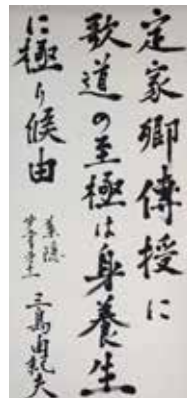 定家卿傳授に
歌道の至極は身養生
に極り候由
三島由紀夫